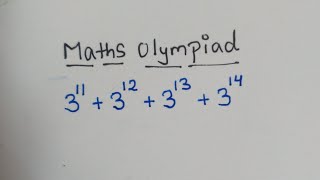 Maths Olympiad
3¹¹ + 3¹² + 3¹³ + 3¹⁴